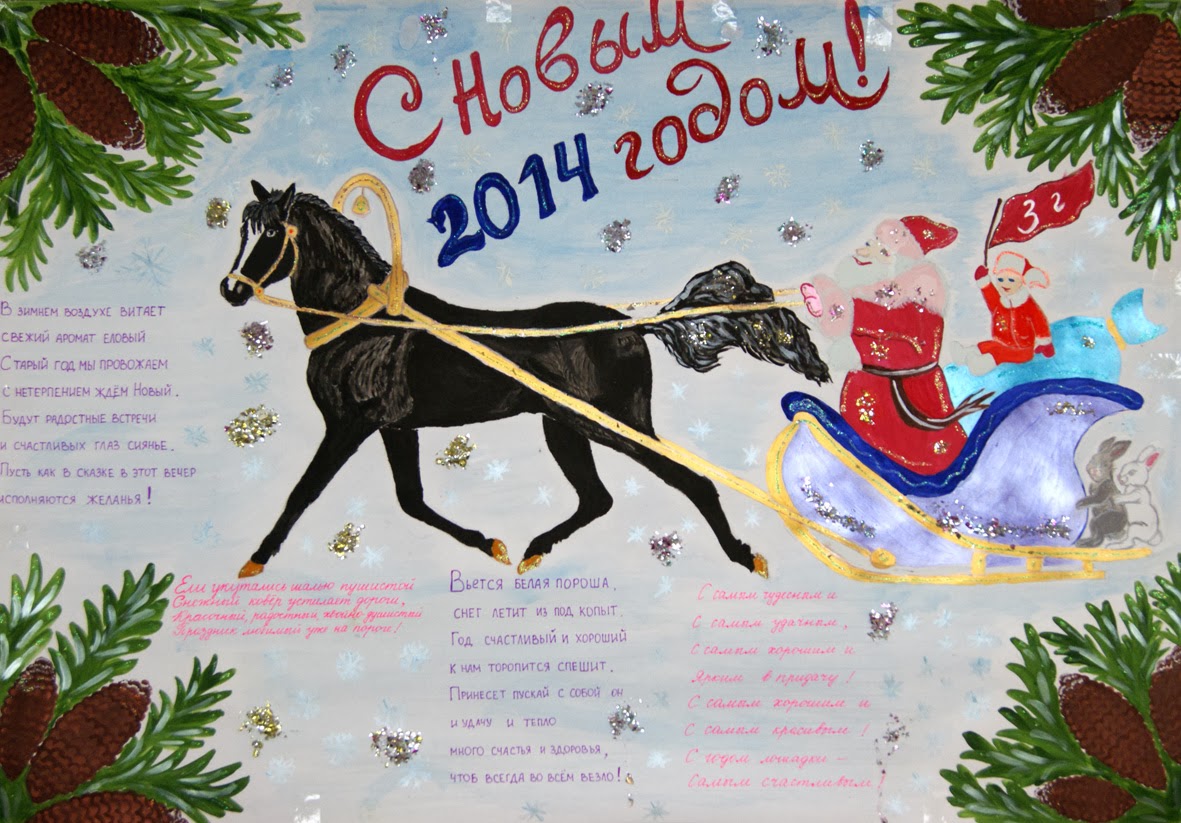 С Новым
2014 годом!
3 г
В зимнем воздухе витает
свежий аромат еловый
Старый год мы провожаем
с нетерпением ждём Новый.
Будут радостные встречи
и счастливых глаз сиянье.
Пусть как в сказке в этот вечер
исполняются желанья!
Ели укутались шалью пушистой
Снежный ковёр устилает дороги,
Красочный, радостный, хвойно-душистый
Праздник любимый уже на пороге!
Вьется белая пороша,
снег летит из под копыт.
Год счастливый и хороший
к нам торопится спешит.
Принесет пускай с собой он
и удачу и тепло
много счастья и здоровья,
чтоб всегда во всём везло!
С самым чудесным и
С самым удачным,
С самым хорошим и
Ярким в придачу!
С самым хорошим и
С самым красивым!
С годом лошадки –
Самым счастливым!